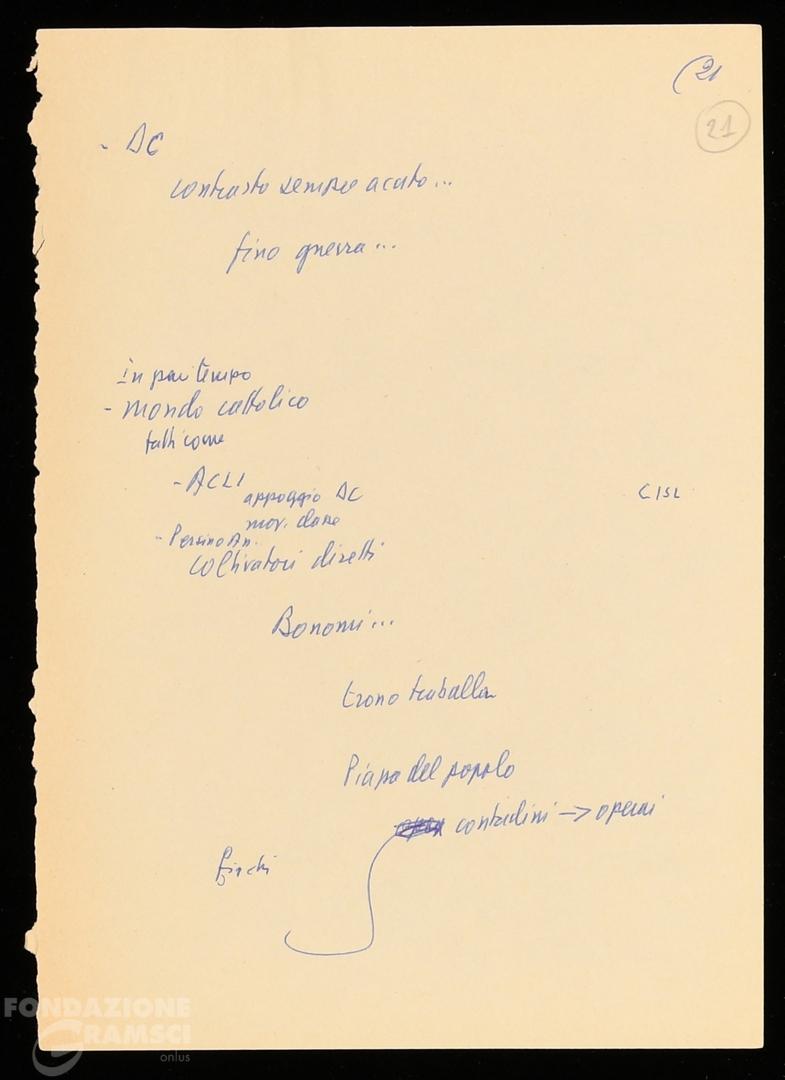 (21
21
- DC
contrasto sempre acuto...
fino guerra...
In pari tempo
- mondo cattolico
tutti come
- ACLI
appoggio DC
CISL
mov. classe
- Persino
coltivatori diretti
Bonomi...
trono traballa
Piazza del popolo
contadini -> operai
FONDAZIONE
GRAMSCI
onlus